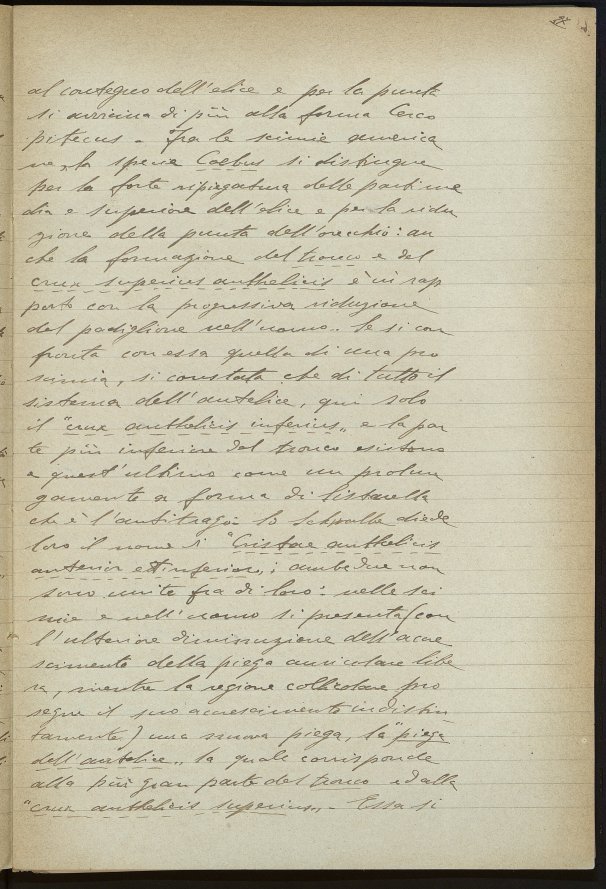 al contegno dell'elice e per la punta
si avvicina di più alla forma Cerco
pitecus - Fra le scimmie america
ne, la specie Coebus si distingue
per la forte ripiegatura delle parti me
dia e superiore dell'elice e per la ridu
zione della punta dell'orecchio: an
che la formazione del tronco e del
crux superius anthelicis è in rap
porto con la progressiva riduzione
del padiglione nell'uomo. Se si con
fronta con essa quella di una pro
scimia, si constata che di tutto il
sistema dell'antelice, qui solo
il "crux anthelicis inferius„ e la par
te più inferiore del tronco esistono
e quest'ultimo come un prolun
gamento a forma di listarella
che è l'antitrago: lo Schwalbe diede
loro il nome di "Cristae anthelicis
anterior et inferior„; ambedue non
sono unite fra di loro: nelle sci
mie e nell'uomo si presenta (con
l'ulteriore diminuzione dell'accre
scimento della piega auricolare libe
ra, mentre la regione collicolare pro
segue il suo accrescimento indistin
tamente) una nuova piega, la "piega
dell'antelice„ la quale corrisponde
alla più gran parte del tronco ed alla
"crux anthelicis superius„ - Essa si